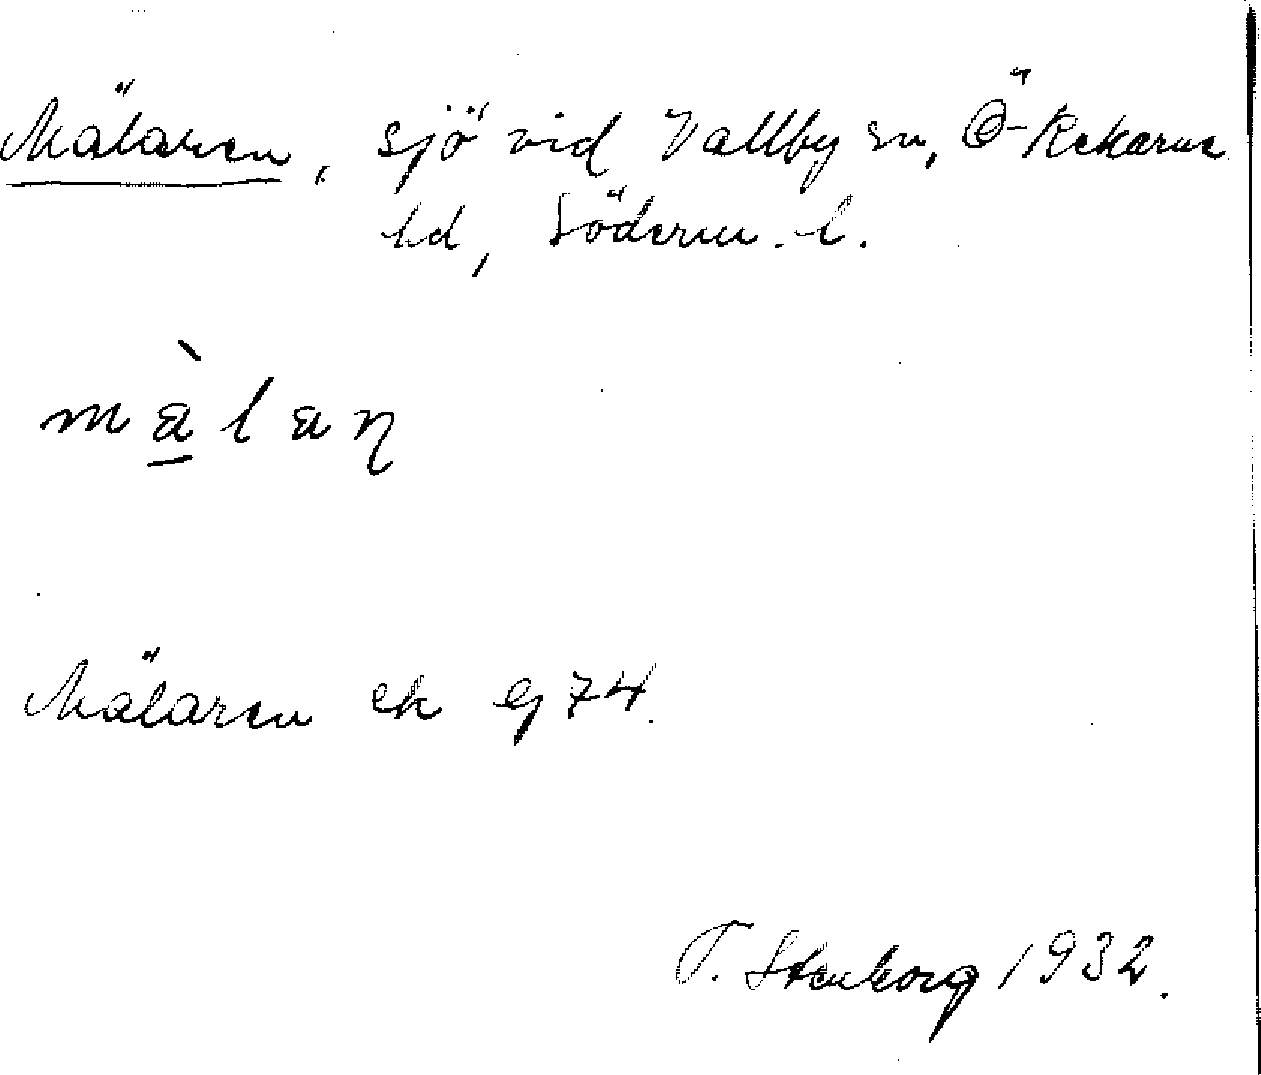 Mälaren, sjö vid Vallby sn, Ö-Rekarne
hd, Söderm. l.
mὰ̱lаɳ
Mälaren ek 74.
T. Stenborg 1932.